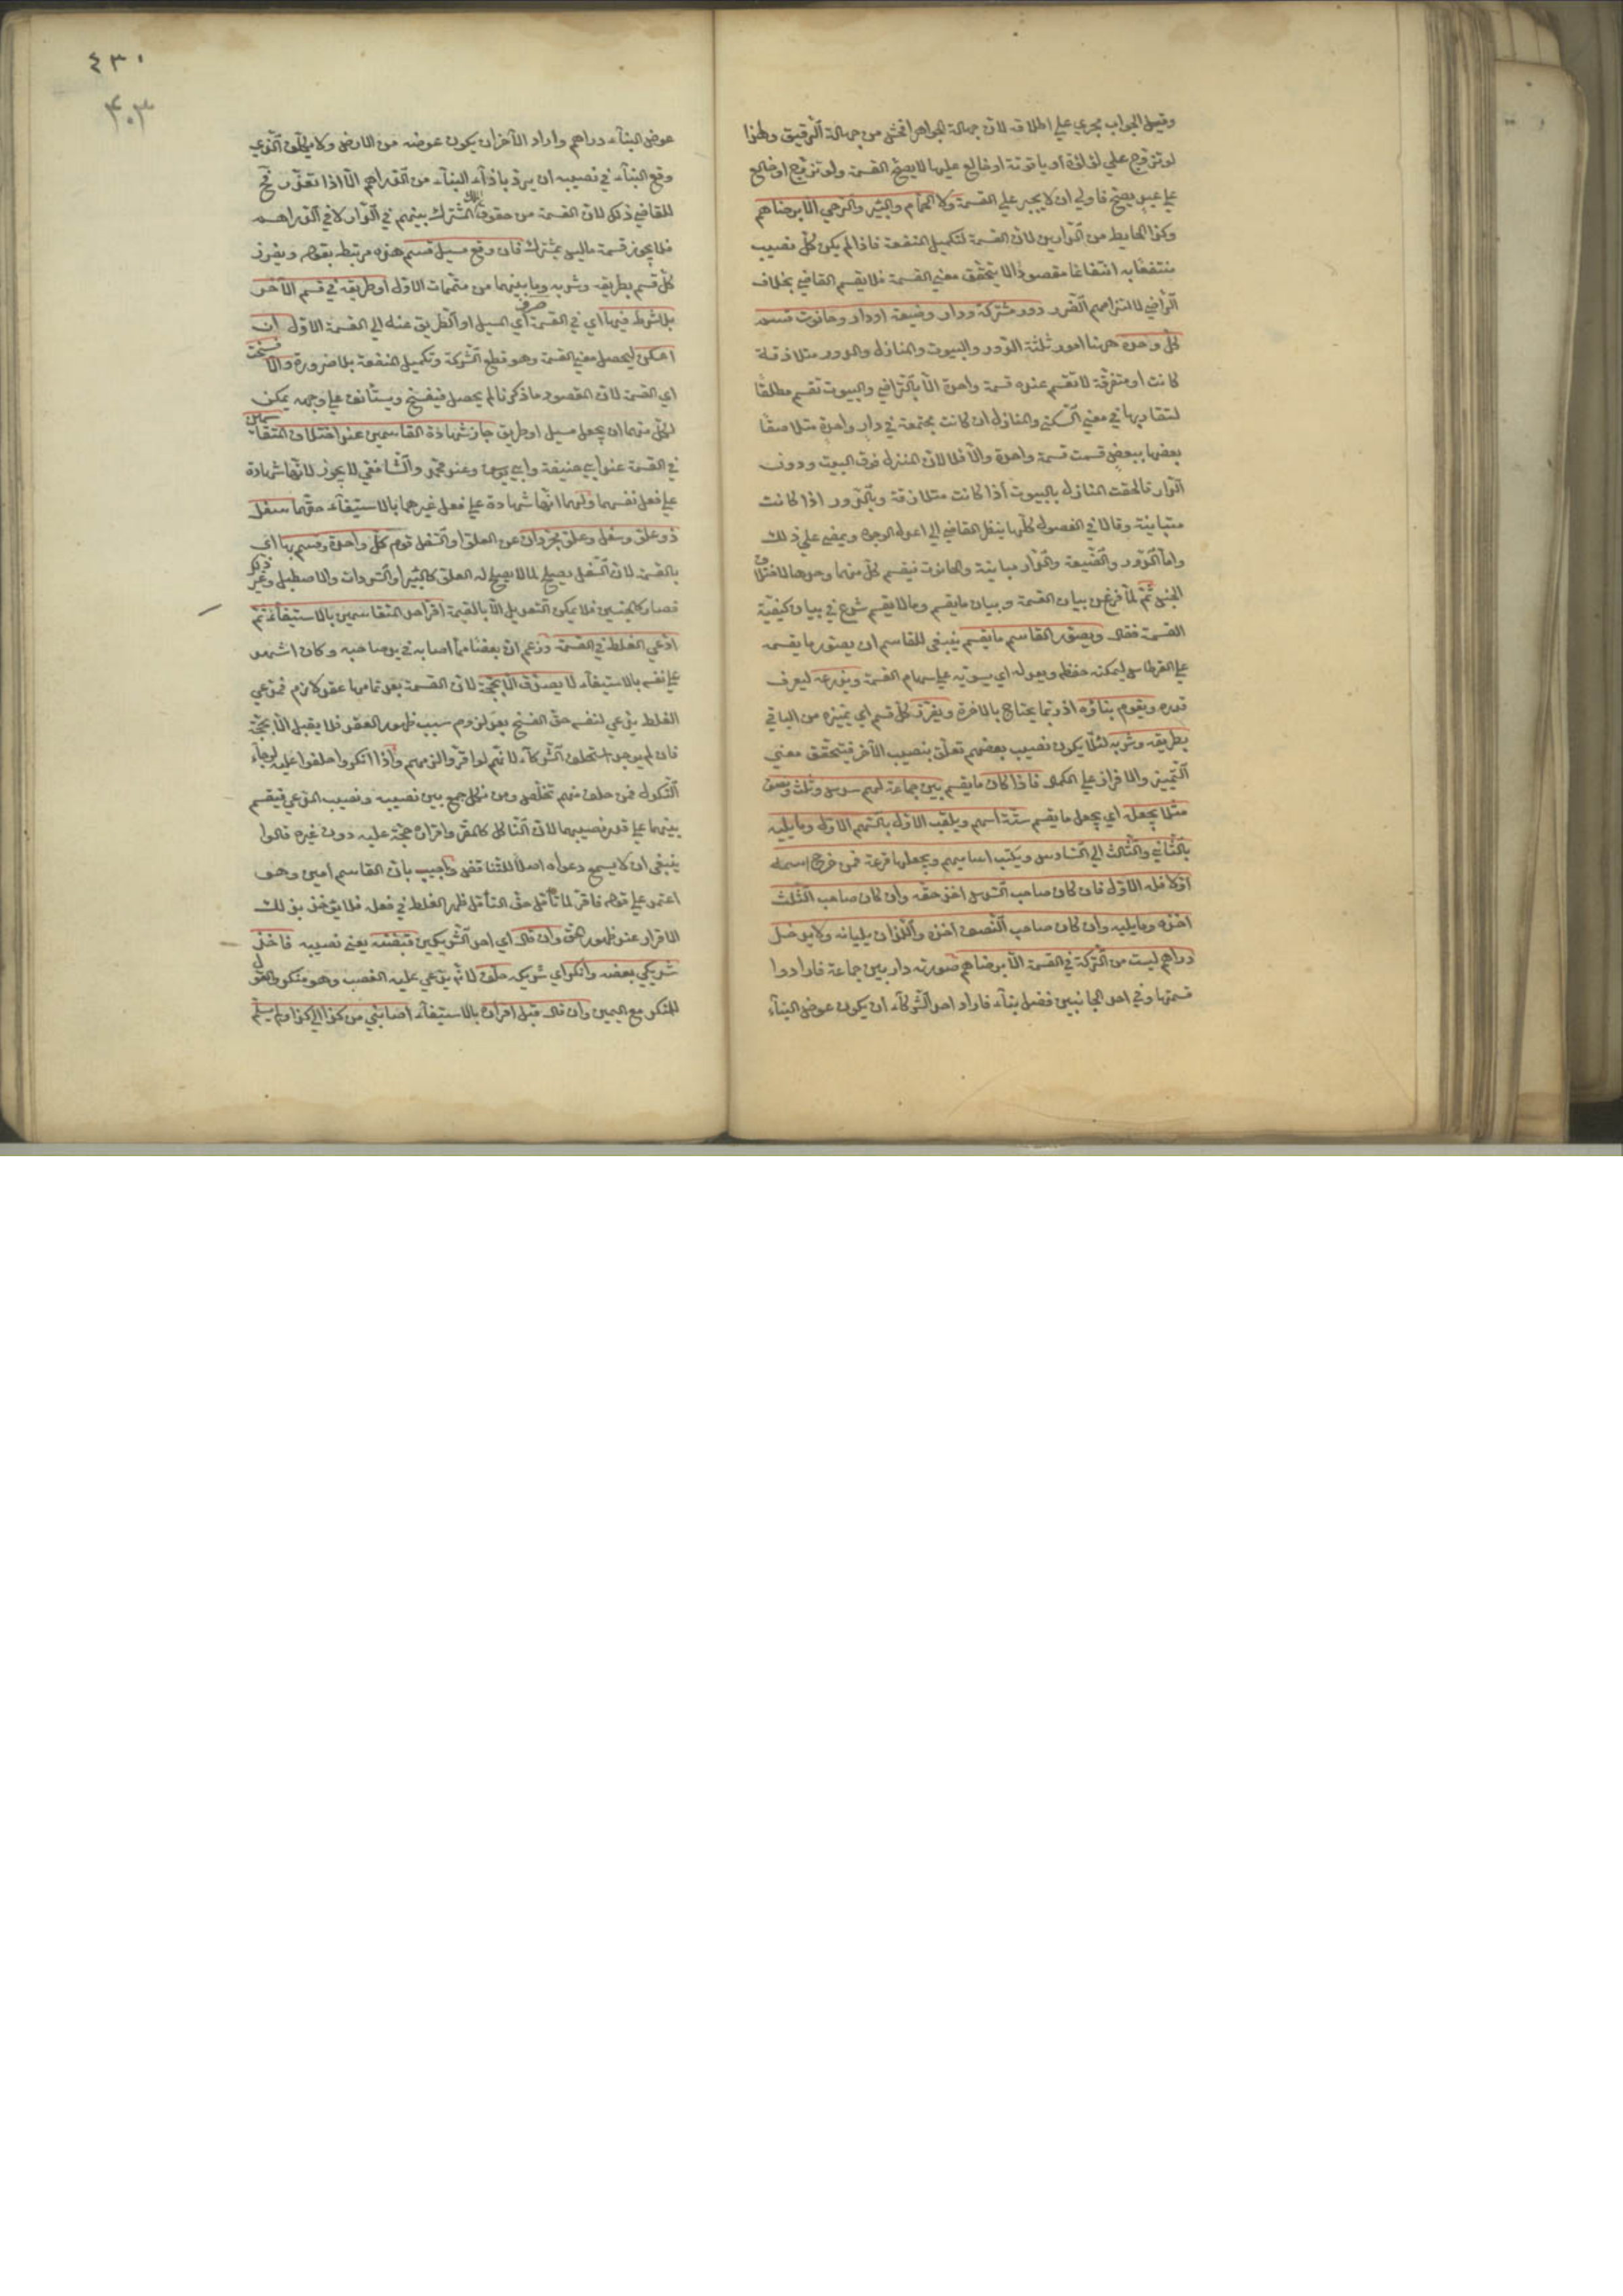 وقيل الجواب يجري على اطلاقه لان جهالة الجواهر افحش من جهالة الرقيق ولهذا
لو تزوج على لؤلؤة او ياقوتة او خالع عليها لا يصح القسمة ولو تزوج او خالع
على عبد يصح فاولى ان لا يجبر على القسمة ولا الحمام والبئر والرحي الا برضاهم
وكذا الحايط من الدارين لان القسمة لتكميل المنفعة فاذا لم يكن كل نصيب
منتفعا به انتفاعا مقصودا لا يتحقق معني القسمة فلا يقسم القاضي بخلاف
التراضي لالتزامهم الضرر دور مشتركة ودار وضيعة او دار وحانوت قسم
كل وحده ههنا امور ثلثة الدور والبيوت والمنازل والدور متلازقة
كانت او متفرقة لا تقسم عنده قسمة واحدة الا بالتراضي والبيوت تقسم مطلقا
لتقاربها في معني السكني والمنازل ان كانت مجتمعة في دار واحدة متلاصقا
بعضها ببعض قسمت قسمة واحدة والا فلا لان المنزل فوق البيت ودون
الدار فالحقت المنازل بالبيوت اذا كانت متلازقة وبالدور اذا كانت
متباينة وقالا في الفصول كلها ينظر القاضي الي اعدل الوجوه ويمضي على ذلك
واما الدور والضيعة والدار مباينة والحانوت فيقسم كل منها وحدها لاختلاف
الجنس ثم لما فرغ من بيان القسمة وبيان ما يقسم وما لا يقسم شرع في بيان كيفية
القسمة فقال ويصور القاسم ما يقسم ينبغي للقاسم ان يصور ما يقسمه
على القرطاس ليمكنه حفظه ويعدله اي يسويه على سهام القسمة ويذرعه ليعرف
قدره ويقوم بناؤه اذ ربما يحتاج بالاخرة ويفرز كل قسم اي يميزه من الباقي
بطريقه وشربه لئلا يكون نصيب بعضهم تعلق بنصيب الآخر فيتحقق معني
التمييز والافراز على الكمال فاذا كان ما يقسم بين جماعة لهم سدس وثلث ونصف
مثلا يجعل اي يجعل ما يقسم ستة اسهم ويلقب الاول بالسهم الاول وما يليه
بالثاني والثالث الي السادس ويكتب اساميهم ويجعلها قرعة فمن خرج اسمه
اولا فله الاول فان كان صاحب السدس اخذ حقه وان كان صاحب الثلث
اخذه وما يليه وان كان صاحب النصف اخذه واللذان يليانه ولا يدخل
دراهم ليست من التركة في القسمة الا برضاهم صورته دار بين جماعة فارادوا
قسمتها وفي احد الجانبين فضل بناء فاراد احد الشركاء ان يكون عوض البناء
٤٣٠
٤٠٣
عوض البناء دراهم واراد الآخر ان يكون عوضه من الارض ولا يكلف الذي
وقع البناء في نصيبه ان يرد باذاء البناء من الدراهم الا اذا تعذر فح
للقاضي ذلك لان القسمة من حقوق المشترك بينهم في الدار لا في الدراهم
فلا يجوز قسمة ما ليس بمشترك فان وقع مسيل قسم هذه مرتبط بقوله ويفرز
كل قسم بطريقه وشربه وما بينهما من متممات الاول او طريقه في قسم الآخر
بلا شرط فيها اي في القسمة صرف اي المسيل او الطريق عنه الي القسمة الاول ان
امكن ليحصل معني القسمة وهو قطع الشركة وتكميل المنفعة بلا ضرورة والا فسخت
اي القسمة لان المقصود ما ذكرنا لم يحصل فيفسخ ويستأنف على وجه يمكن
لكل منهما ان يجعل مسيل او طريق جاز شهادة القاسمين عند اختلاف المتقاسمين
في القسمة عند ابي حنيفة وابي يوسف وعند محمد والشافعي لا يجوز لانها شهادة
على فعل نفسهما ولهما انها شهادة على فعل غيرهما بالاستيفاء حقهما سفل
ذو علو وسفل وعلو مجردان عن العلو او السفل قوم كل واحدة وقسم بها اي
بالقسمة لان السفل يصلح لما لا يصلح له العلو كالبئر او السرداب والاصطبل وغير ذلك
فصار كالجنسين فلا يمكن التعديل الا بالقيمة اقر احد المتقاسمين بالاستيفاء ثم
ادعي الغلط في القسمة وزعم ان بعضا مما اصابه في يد صاحبه وكان اشهد
على نفسه بالاستيفاء لا يصدق الا بحجة لان القسمة بعد تمامها عقد لازم فمدعي
الغلط يدعي لنفسه حق الفسخ بعد لزوم سبب ظهور العقد فلا يقبل الا بحجة
فان لم يوجد استحلف الشركاء لانهم لو اقروا لزمهم واذا انكروا حلفوا عليه لرجاء
النكول فمن حلف منهم تخلص ومن نكل جمع بين نصيبه ونصيب المدعي فيقسم
بينهما على قدر نصيبهما لان الناكل كالمقر واقراره حجة عليه دون غيره قالوا
ينبغي ان لا يسمع دعواه اصلا للتناقض واجيب بان القاسم امين وهو
اعتمد على قوله فاقر لما تأمل حق التأمل ظهر الغلط في فعله فلا يؤخذ بذلك
الاقرار عند ظهور الحق وان قال اي احد الشريكين قبضته يعني نصيبه فاخذ
شريكي بعضه وانكر اي شريكه حلف لانه يدعي عليه الغصب وهو منكر والقول
للمنكر مع اليمين وان قال قبل اقراره بالاستيفاء اصابني من كذا الي كذا ولم يسلم